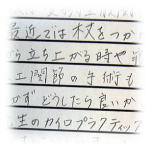 最近では杖をつか
ら立ち上がる時や
工関節の手術も
かずどうしたら良いか
生のカイロプラクティック